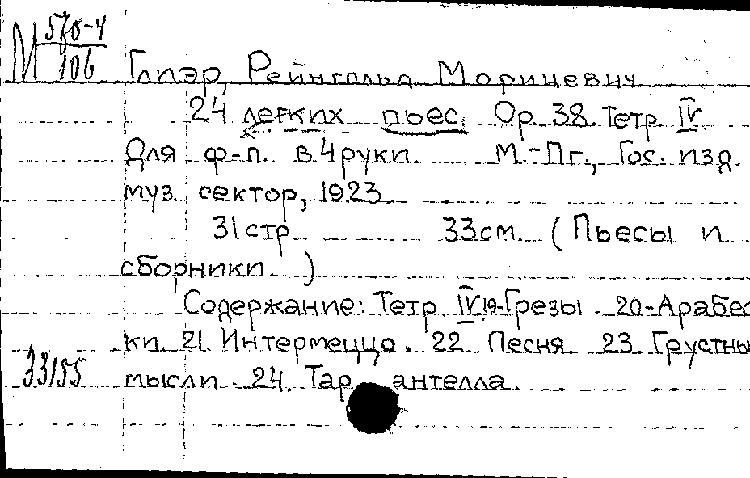 М 570-4
106
Глиэр, Рейнгольд Морицевич
24 легких пьес. Op. 38. Тетр. IV
Для ф-п. в 4 руки. М.-Пг., Гос. изд.
муз. сектор, 1923
31 стр. 33 см. (Пьесы и
сборники.)
Содержание: Тетр. IV 19-Грезы. 20-Арабес
ки. 21 Интермеццо. 22 Песня 23 Грустны
33155 мысли 24. Тарантелла.